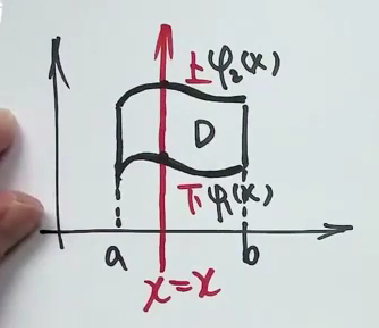 上φ₂(x)
D
下φ₁(x)
a
b
x=x